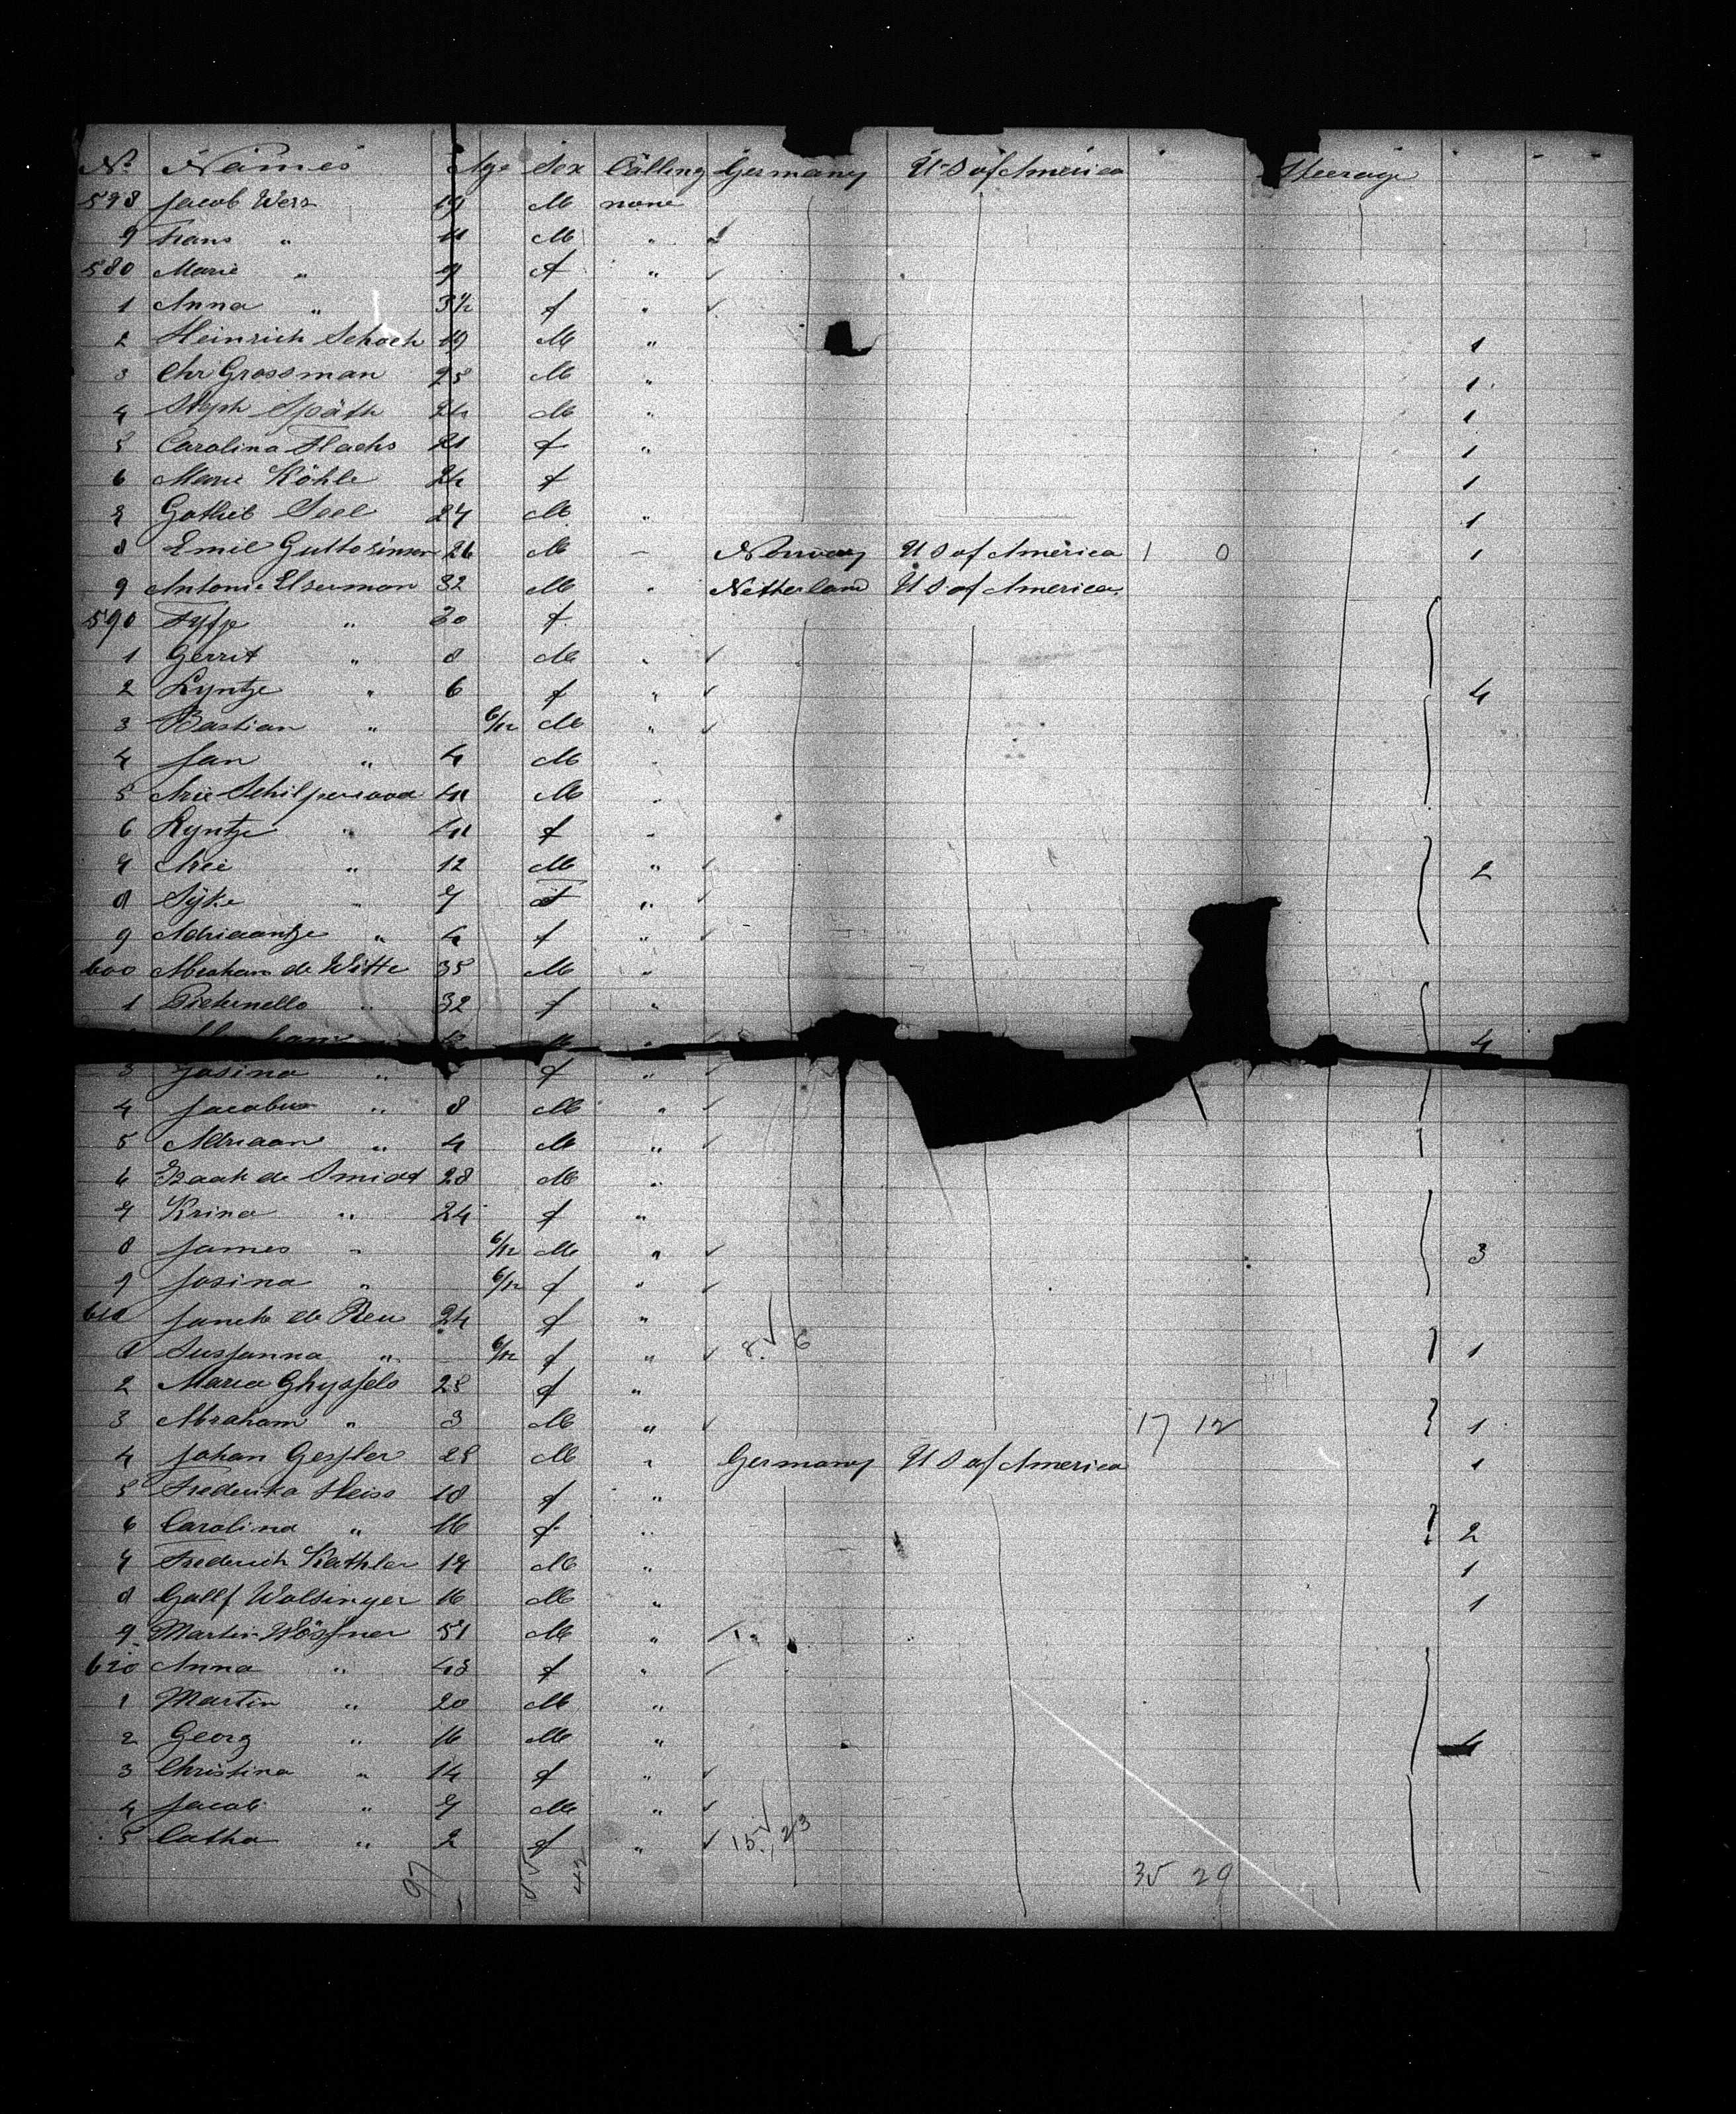 No Names Age Sex Calling Germany U S of America Steerage
598 Jacob Werz 19 M none
9 Frans " 11 M "
580 Marie " 9 f "
1 Anna " f "
2 Heinrich Schoch 19 M " 1
3 Chr Grossman 25 M " 1
4 Steph Späth 24 M " 1
5 Carolina Flachs 21 f " 1
6 Marie Köhle 24 f 1
7 Gotlieb Seel 27 M " 1
8 Emil 26 M Norway U S of America 1 0 1
9 Antonie 32 M " Netherland U S of America
590 " 30 f
1 Gerrit " 8 M "
2 Lyntje " 6 f " 4
3 Bastian " 6/12 M "
4 Jan " 4 M "
5 Arie 41 M "
6 Lyntje " 41 f "
7 Arie " 12 M " 2
8 Sijke " 7 f "
9 Adriaantje " 4 f "
600 Abraham de Witte 35 M "
1 " 32 f "
Abraham " M " 4
3 Josina " f "
4 Jacobus " 8 M "
5 Adriaan " 4 M "
6 Izaak de Smidt 28 M "
7 Krina " 24 f "
8 James " 6/12 M " 3
9 Josina " 6/12 f "
610 de Reu 24 f "
1 Susanna " 6/12 f " 8 6 1
2 Maria Ghyssels 25 f "
3 Abraham " 3 M " 17 12 1
4 Johan Gessler 25 M " Germany U S of America 1
5 Frederika Heiss 18 f "
6 Carolina " 16 f " 2
7 Frederich Kathler 17 M " 1
8 Wolsinger 16 M " 1
9 Martin Wössner 51 M "
620 Anna " 43 f "
1 Martin " 20 M "
2 Georg " 16 M " 4
3 Christina " 14 f "
4 Jacob " 7 M "
5 Catha " 2 f " 15 23
97 55 42 35 29